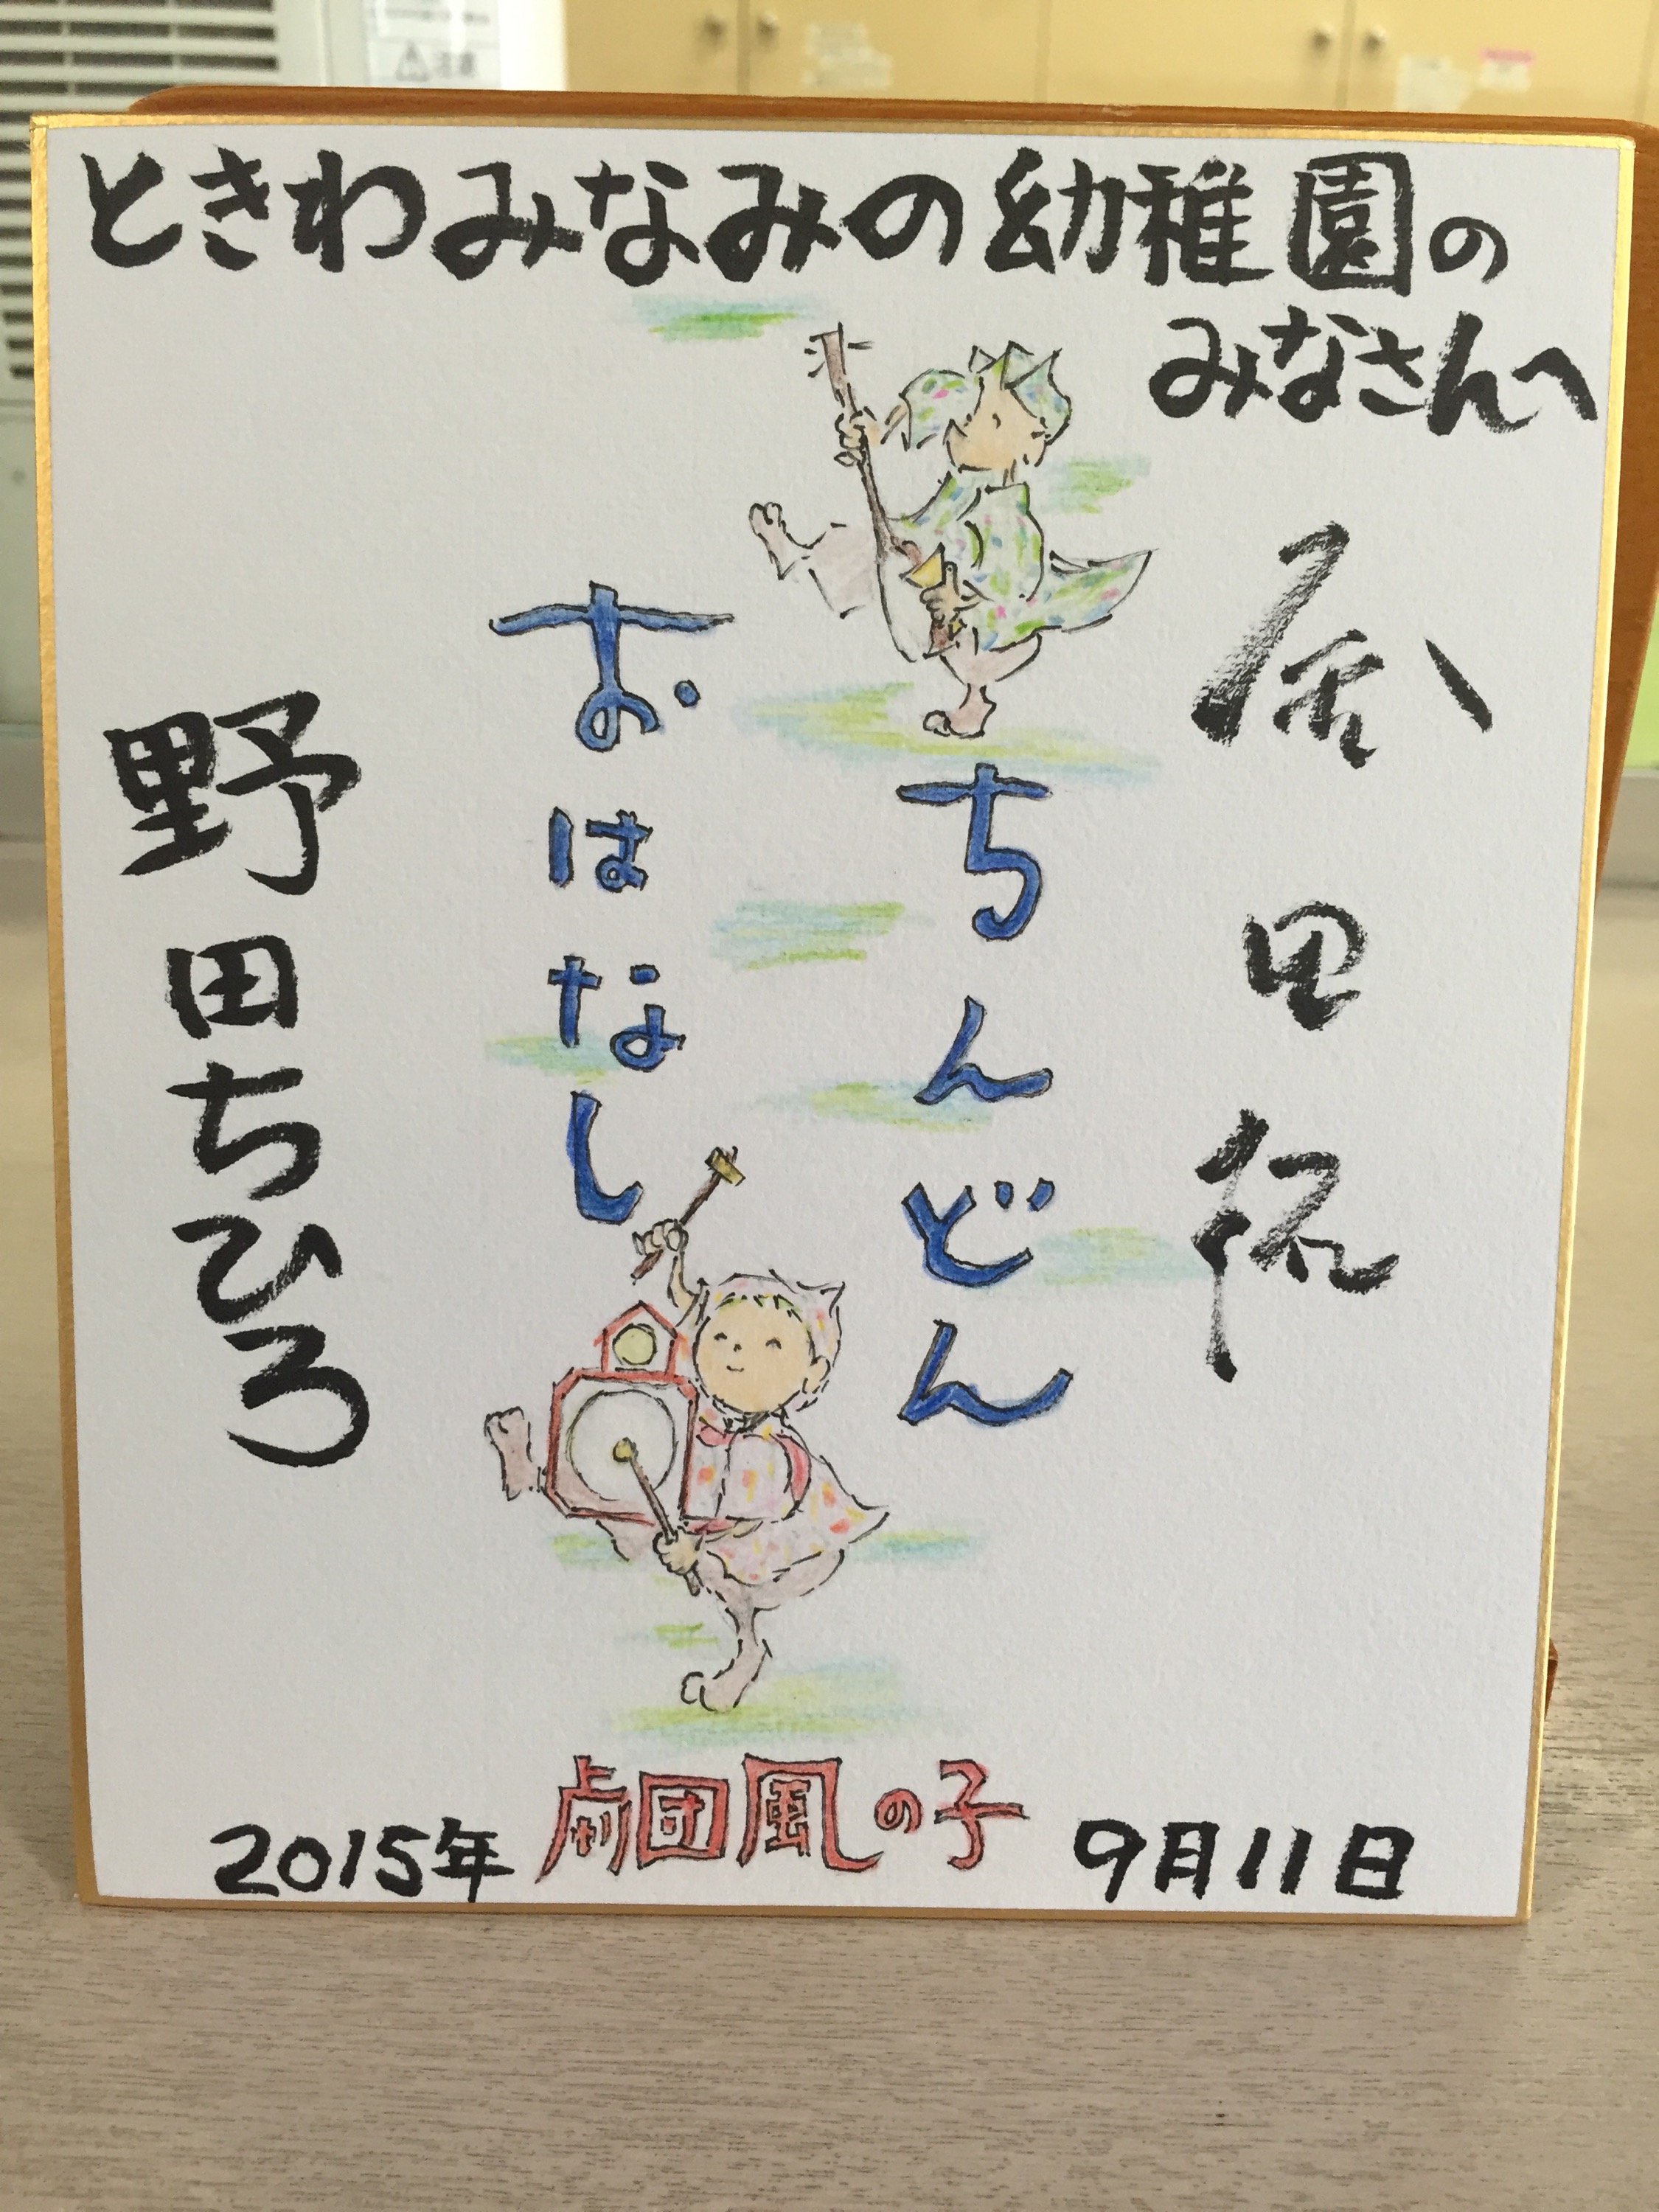 ときわみなみの幼稚園の
みなさんへ
ちんどん
おはなし
野田ちひろ
2015年 劇団風の子 9月11日
注意